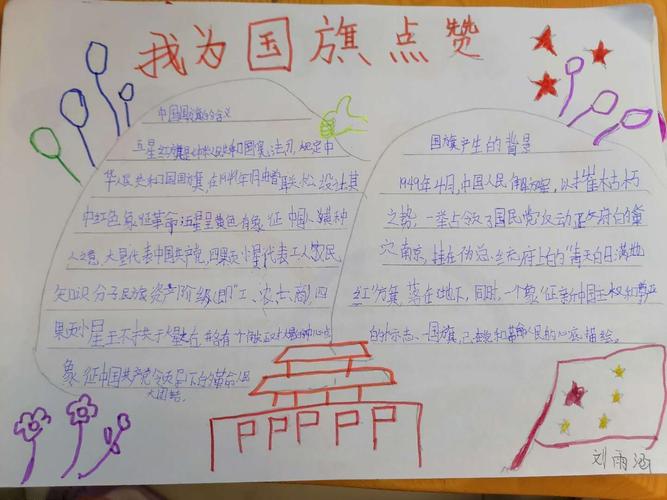 我为国旗点赞
中国国旗的含义
五星红旗是中华人民共和国宪法规定中
华人民共和国国旗,在1949年由曾联松设计其
中红色象征革命五星呈黄色有象征中国人黄种
人之意,大星代表中国共产党,四颗小星代表工人农民
知识分子民族资产阶级(即"工、农士商)四
颗小星于大星右并各有个
象征中国共产党领导下的革命人民
大团结。
国旗产生的背景
1949年4月,中国人民解放军,以摧枯朽
之势,一举占领了国民党反动政府的巢
穴南京,挂在伪总统府上的"青天白日满地
红"方旗落在地下,同时,一个象征新中国主权和尊严
的标志、国旗,已 和 人民的心底描绘。
P P P P P
刘雨涵